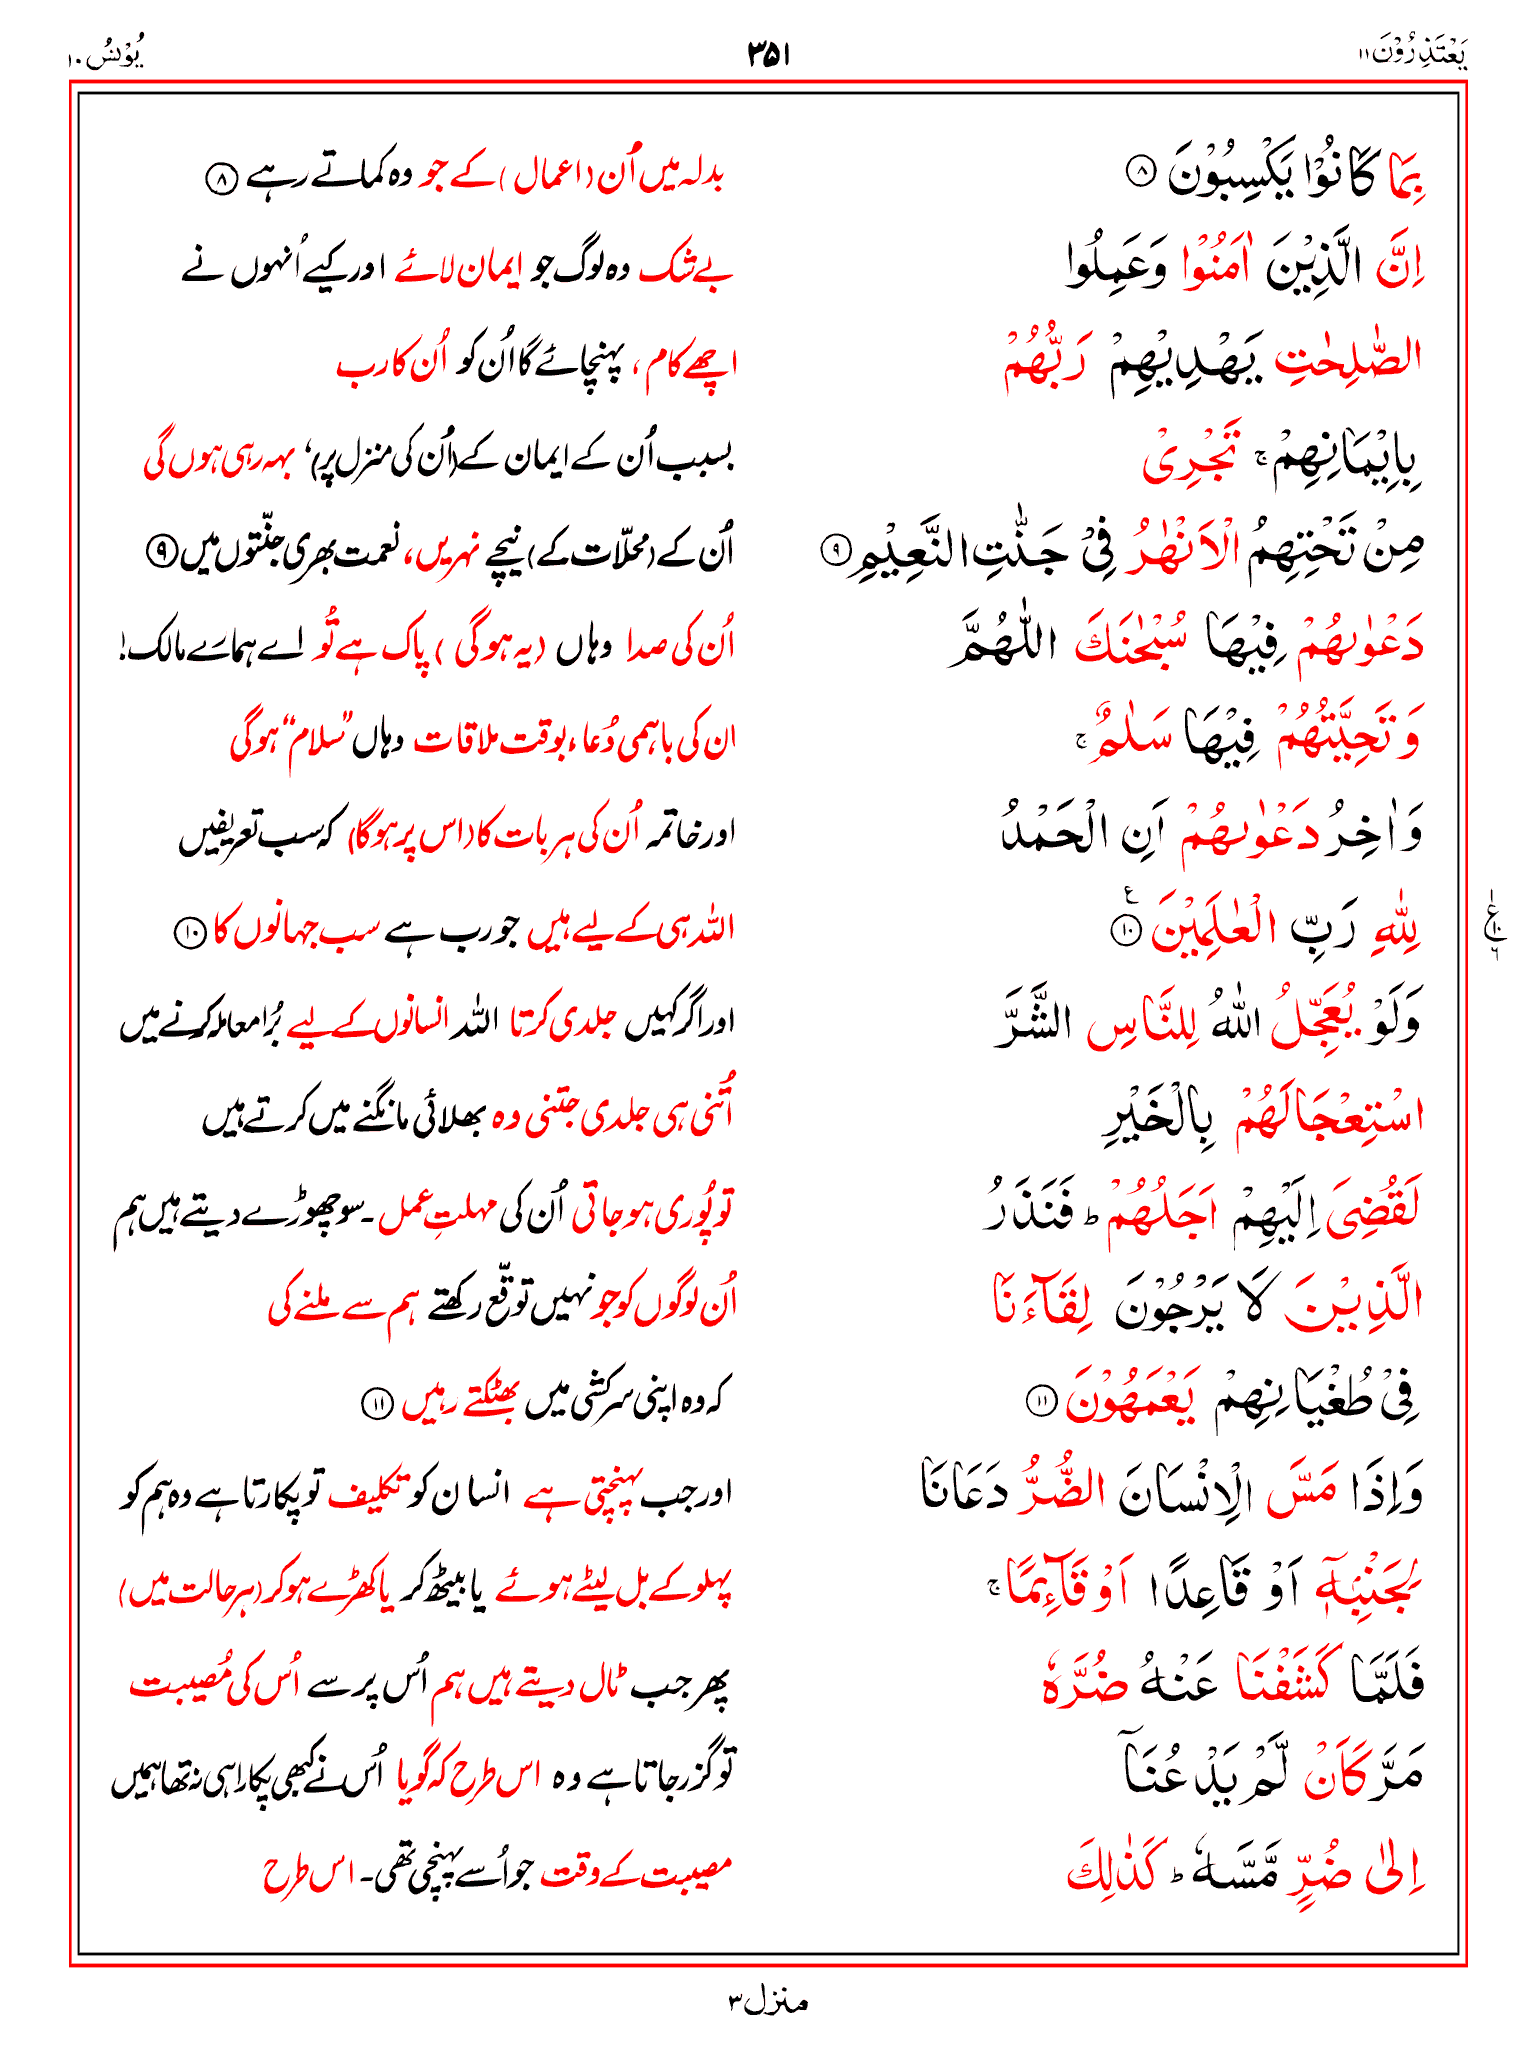 یَعْتَذِرُوْنَ ۱۱ ۳۵۱ یُوْنُس ۱۰
بِمَا كَانُوْا یَكْسِبُوْنَ ۝۸ بدلہ میں اُن (اعمال) کے جو وہ کماتے رہے ۝۸
اِنَّ الَّذِیْنَ اٰمَنُوْا وَعَمِلُوا بے شک وہ لوگ جو ایمان لائے اور کیے اُنہوں نے
الصّٰلِحٰتِ یَهْدِیْهِمْ رَبُّهُمْ اچھے کام، پہنچائے گا اُن کو اُن کا رب
بِاِیْمَانِهِمْ ۚ تَجْرِیْ بسبب اُن کے ایمان کے (اُن کی منزل پر)، بہہ رہی ہوں گی
مِنْ تَحْتِهِمُ الْاَنْهٰرُ فِیْ جَنّٰتِ النَّعِیْمِ ۝۹ اُن کے (محلّات کے) نیچے نہریں، نعمت بھری جنّتوں میں ۝۹
دَعْوٰىهُمْ فِیْهَا سُبْحٰنَكَ اللّٰهُمَّ اُن کی صدا وہاں (یہ ہوگی) پاک ہے تُو اے ہمارے مالک!
وَتَحِیَّتُهُمْ فِیْهَا سَلٰمٌ ۚ ان کی باہمی دُعا، بوقت ملاقات وہاں ”سلام“ ہوگی
وَاٰخِرُ دَعْوٰىهُمْ اَنِ الْحَمْدُ اور خاتمہ اُن کی ہر بات کا (اس پر ہوگا) کہ سب تعریفیں
لِلّٰهِ رَبِّ الْعٰلَمِیْنَ ۝۱۰ ع اللہ ہی کے لیے ہیں جو رب ہے سب جہانوں کا ۝۱۰
ع ۱ ۱۰ ۶
وَلَوْ یُعَجِّلُ اللّٰهُ لِلنَّاسِ الشَّرَّ اور اگر کہیں جلدی کرتا اللہ انسانوں کے لیے بُرا معاملہ کرنے میں
اسْتِعْجَالَهُمْ بِالْخَیْرِ اُتنی ہی جلدی جتنی وہ بھلائی مانگنے میں کرتے ہیں
لَقُضِیَ اِلَیْهِمْ اَجَلُهُمْ ؕ فَنَذَرُ تو پُوری ہو جاتی اُن کی مہلتِ عمل۔ سو چھوڑے دیتے ہیں ہم
الَّذِیْنَ لَا یَرْجُوْنَ لِقَآءَنَا اُن لوگوں کو جو نہیں توقّع رکھتے ہم سے ملنے کی
فِیْ طُغْیَانِهِمْ یَعْمَهُوْنَ ۝۱۱ کہ وہ اپنی سرکشی میں بھٹکتے رہیں ۝۱۱
وَاِذَا مَسَّ الْاِنْسَانَ الضُّرُّ دَعَانَا اور جب پہنچتی ہے انسان کو تکلیف تو پکارتا ہے وہ ہم کو
لِجَنْۢبِهٖۤ اَوْ قَاعِدًا اَوْ قَآئِمًا ۚ پہلو کے بل لیٹے ہوئے یا بیٹھ کر یا کھڑے ہوکر (ہر حالت میں)
فَلَمَّا كَشَفْنَا عَنْهُ ضُرَّهٗ پھر جب ٹال دیتے ہیں ہم اُس پر سے اُس کی مُصیبت
مَرَّ كَاَنْ لَّمْ یَدْعُنَاۤ تو گزر جاتا ہے وہ اس طرح کہ گویا اُس نے کبھی پکارا ہی نہ تھا ہمیں
اِلٰی ضُرٍّ مَّسَّهٗ ؕ كَذٰلِكَ مصیبت کے وقت جو اُسے پہنچی تھی۔ اس طرح
منزل ۳